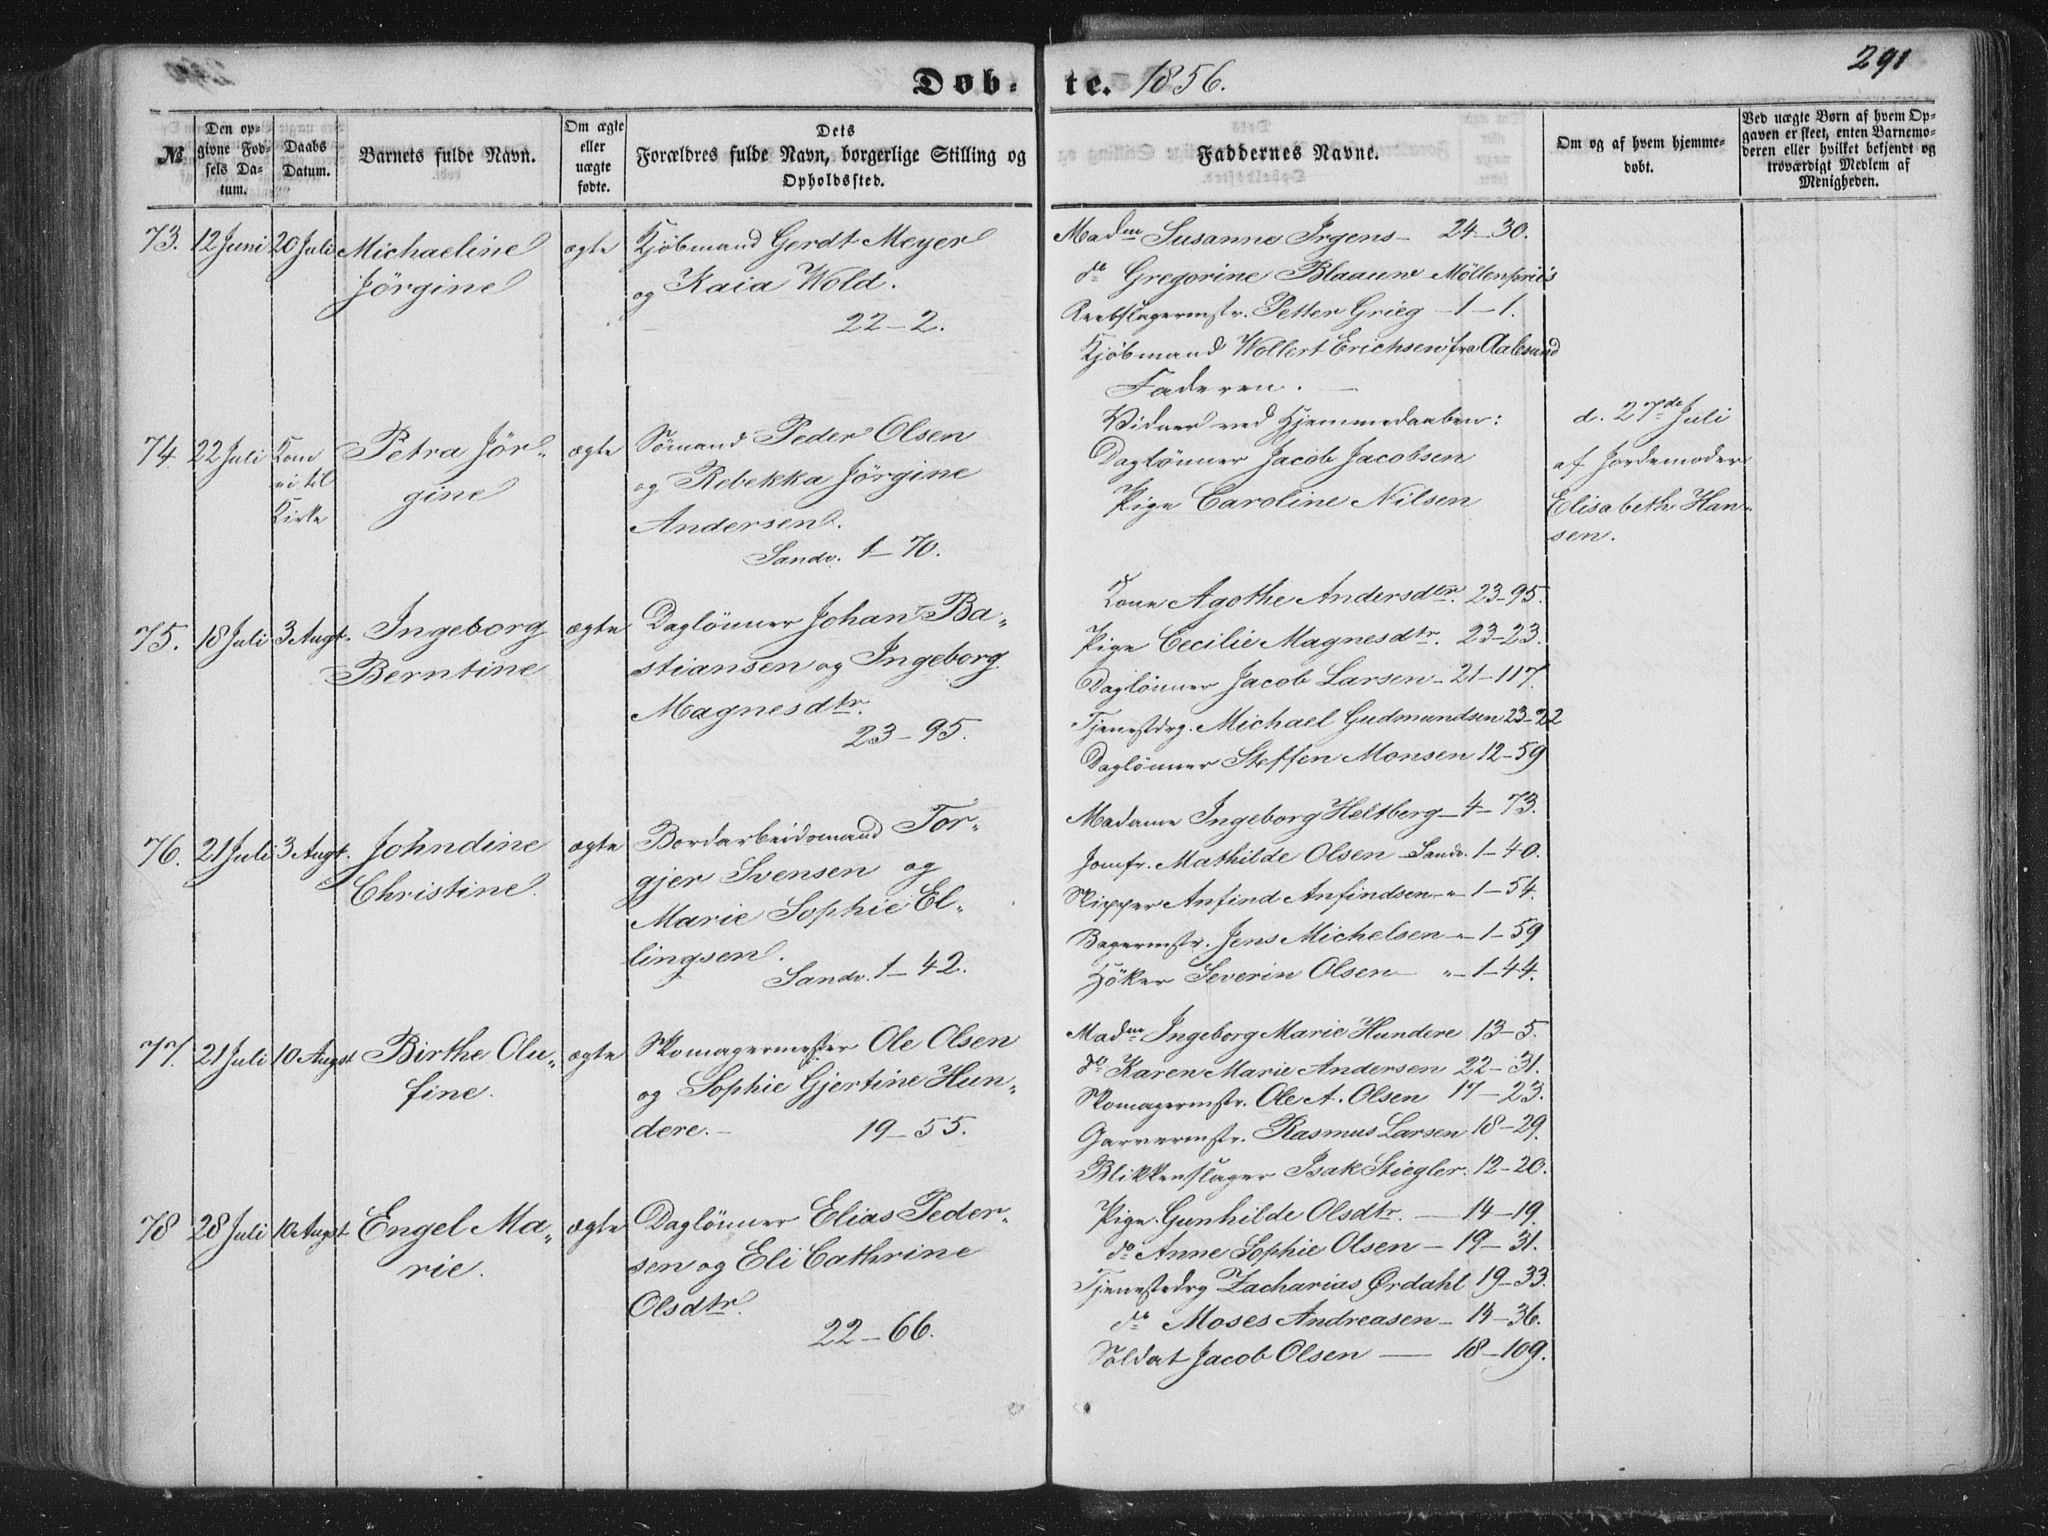 291
Døb-te. 1856.
№
Den opgivne Fødsels Datum.
Daabs Datum.
Barnets fulde Navn.
Om ægte eller uægte fødte.
Dets Forældres fulde Navn, borgerlige Stilling og Opholdssted.
Faddernes Navne.
Om og af hvem hjemmedøbt.
Ved uægte Børn af hvem Opgaven er skeet, enten Barnemoderen eller hvilket bekjendt og troværdigt Medlem af Menigheden.
73. 12 Juni 20 Juli Michaeline ægte Kjöbmand Gerdt Meyer
Jörgine og Kaia Wold.
22-2.
Madm Susanne Irgens - 24-30.
do Gregorine Blaauw Möllenpriis
Reebslagermstr. Petter Grieg - 1-1.
Kjöbmand Wollert Erichsen fra Aalesund
Faderen. —
74. 22 Juli Kom ei til Kirke Petra Jör- ægte Sömand Peder Olsen
gine og Rebekka Jörgine
Andersen.
Sandv. 1-70.
Vidner ved Hjemmedaaben:
Daglönner Jacob Jacobsen
Pige Caroline Nilsen
d. 27de Juli
af Jordemoder
Elisabeth Han-
sen.
75. 18 Juli 3 Augt. Ingeborg ægte Daglönner Johan Ba-
Berntine stiansen og Ingeborg
Magnesdtr.
23-95.
Kone Agothe Andersdtr. 23-95.
Pige Cecilie Magnesdtr. 23-23.
Daglönner Jacob Larsen - 21-117.
Tjenestdrg. Michael Gudmundsen 23-22
Daglönner Steffen Monsen 12-59
76. 21 Juli 3 Augt. Johndine ægte Bordarbeidsmand Tor-
Christine gjer Svensen og
Marie Sophie El-
lingsen.
Sandv. 1-42.
Madame Ingeborg Heltberg - 4-73.
Jomfr. Mathilde Olsen Sandv. 1-40.
Skipper Anfind Anfindsen - " 1-54.
Bagermstr. Jens Michelsen - " 1-59
Höker Severin Olsen - " 1-44.
77. 21 Juli 10 Augst Birthe Olu- ægte Skomagermester Ole Olsen
fine. og Sophie Gjertine Hun-
dere. - 19-55.
Madm Ingeborg Marie Hundere 13-5.
do Karen Marie Andersen 22-31.
Skomagermstr. Ole A. Olsen 17-23.
Garvermstr. Rasmus Larsen 18-29.
Blikkenslager Isak Stiegler. 12-20.
78 28 Juli 10 Augst Engel Ma- ægte Daglönner Elias Peder-
rie. sen og Eli Cathrine
Olsdtr.
22-66.
Pige Gunhilde Olsdtr. — 14-19.
do Anne Sophie Olsen - 19-31.
Tjenestedrg Zacharias Ørdahl 19-33.
do Moses Andreasen - 14-36.
Soldat Jacob Olsen — 18-109.